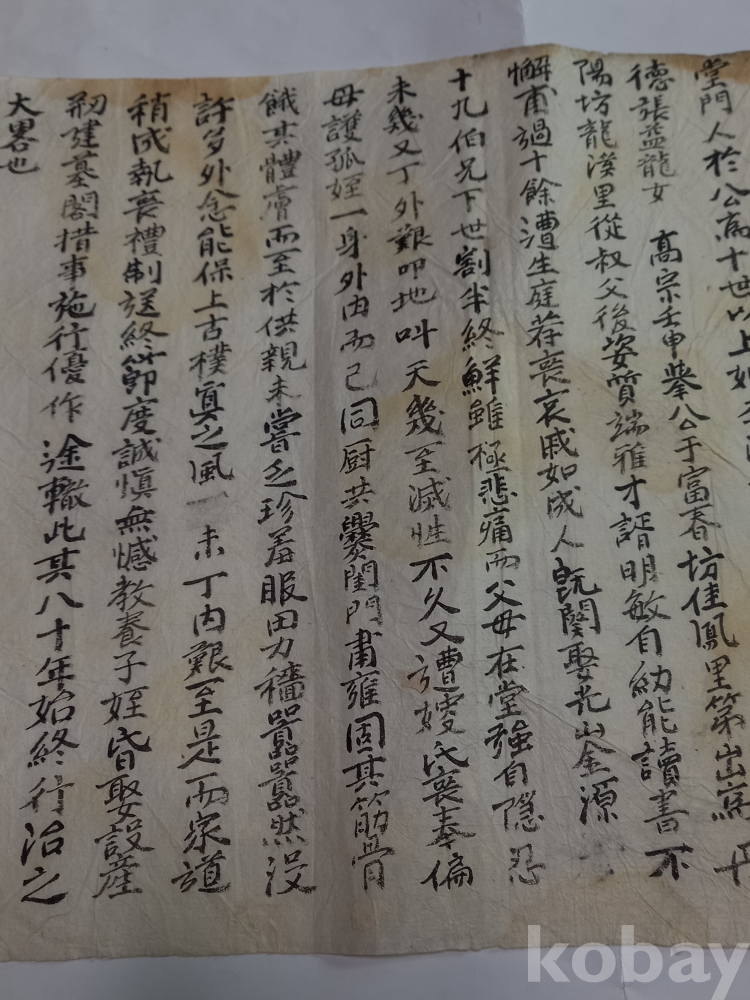 堂門人於公爲十世以上
德張益龍女 高宗壬申擧公于富春坊佳鳳里第出爲
陽坊龍漢里從叔父後姿質端雅才諝明敏自幼能讀書不
懈甫過十餘遭生庭荐喪哀戚如成人旣闋娶光山金源
十九伯兄下世割半終鮮雖極悲痛而父母在堂強自隱忍
未幾又丁外艱叩地叫天幾至滅性不久又遭嫂氏喪奉偏
母護孤姪一身外內而已同厨共爨閨門肅雍固其筋骨
餓其體膚而至於供親未嘗乏珍羞服田力穡囂囂然沒
許多外念能保上古樸實之風 未丁內艱至是而家道
稍成執喪禮制送終節度誠愼無憾敎養子姪昏娶設産
刱建墓閣措事施行優作途轍此其八十年始終行治之
大畧也
kobay